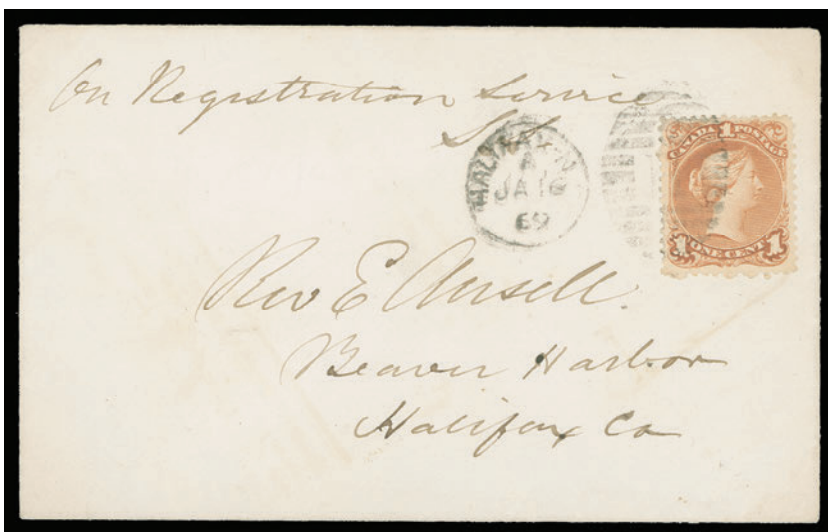 On Registration Service
HALIFAX.N
A
JA 16
69
CANADA 1 POSTAGE
1 ONE CENT 1
Rev E Ansell.
Beaver Harbor
Halifax Co